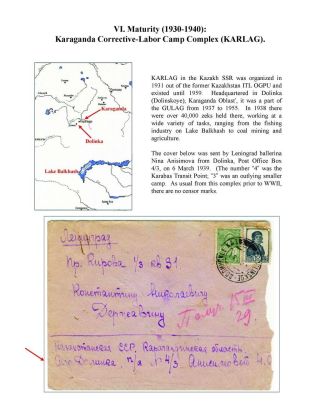 VI. Maturity (1930-1940):
Karaganda Corrective-Labor Camp Complex (KARLAG).
Karaganda
Dolinka
Lake Balkhash
KARLAG in the Kazakh SSR was organized in
1931 out of the former Kazakhstan ITL OGPU and
existed until 1959. Headquartered in Dolinka
(Dolinskoye), Karaganda Oblast', it was a part of
the GULAG from 1937 to 1955. In 1938 there
were over 40,000 zeks held there, working at a
wide variety of tasks, ranging from the fishing
industry on Lake Balkhash to coal mining and
agriculture.
The cover below was sent by Leningrad ballerina
Nina Anisimova from Dolinka, Post Office Box
4/3, on 6 March 1939. (The number "4" was the
Karabas Transit Point; "3" was an outlying smaller
camp. As usual from this complex prior to WWII,
there are no censor marks.
Ленинград
Пр. Кирова 1/3 кв 31.
Константину Николаевичу
Державину
Казахстанская ССР, Карагандинская область
Долинка, п/я № 4/3. Анисимовой